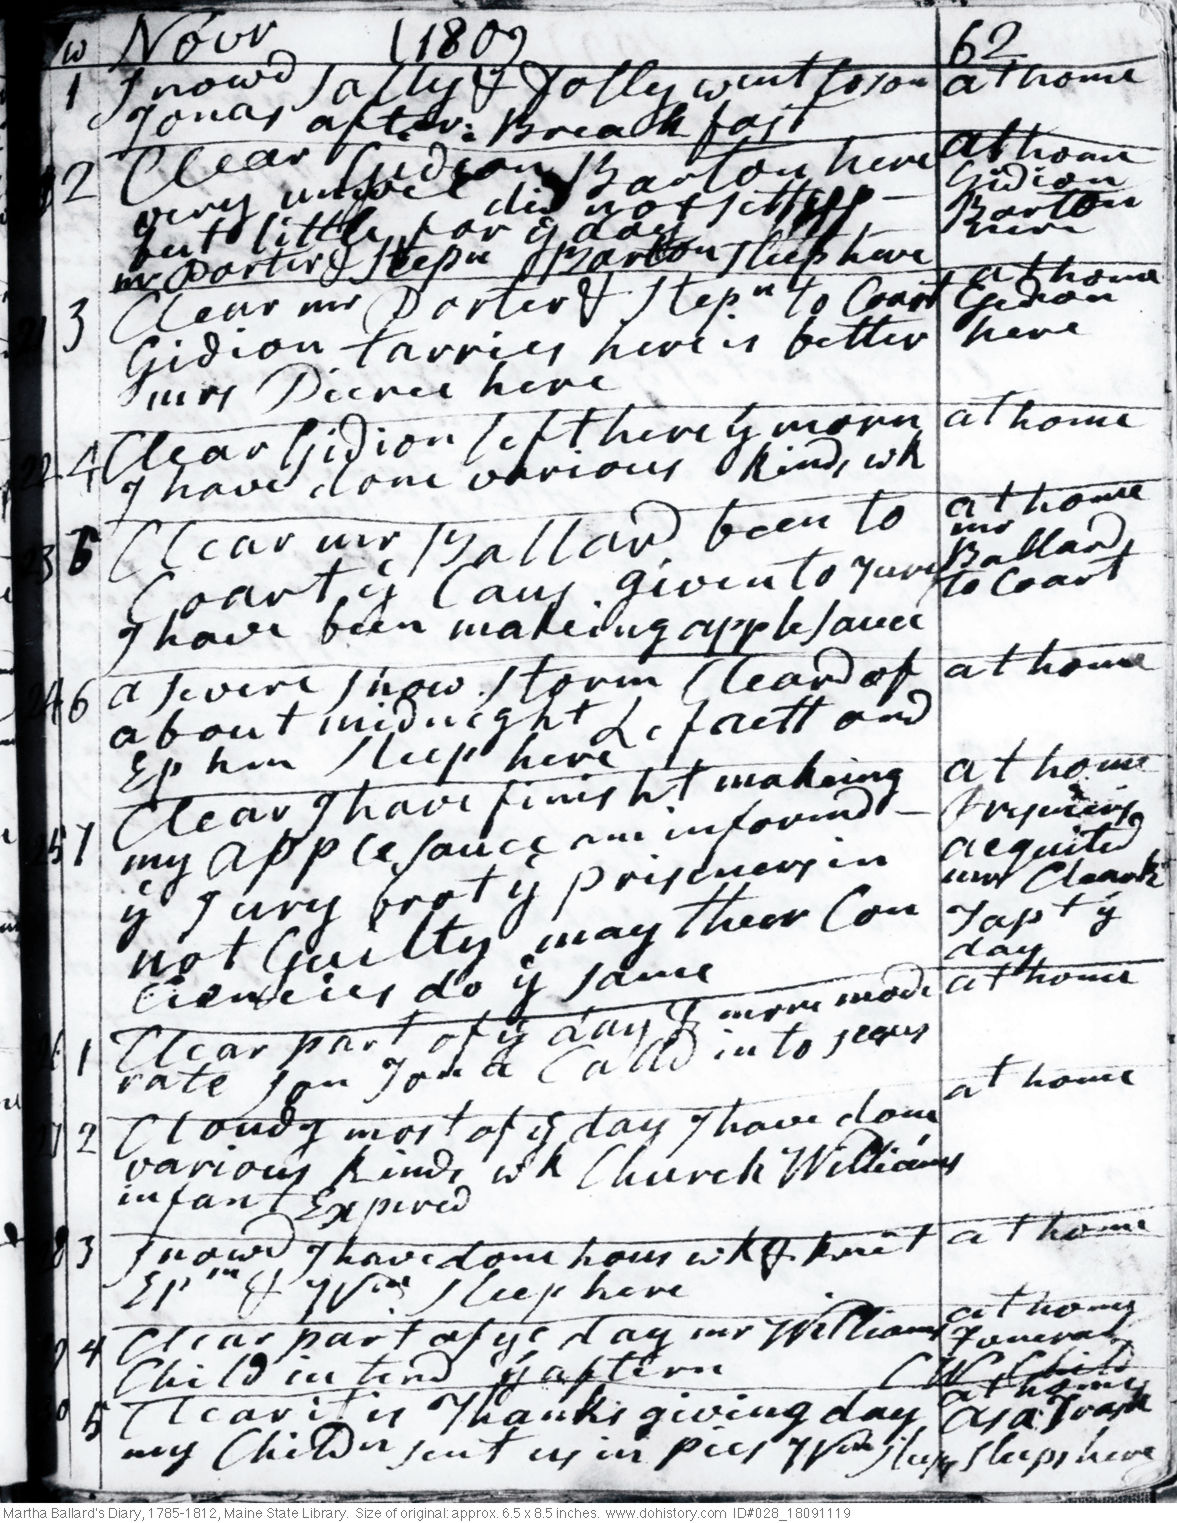 w Novr (1809 62
1 Snowd Sally & Dolly went to son at home
Jonas after Break fast
2 Clear Gidion Barton here at home
very unwel did not sitt up – Gidion
but little for ÿ day Barton
mr Porter & Stepn Barton sleep here here
21 3 Clear mr Porter & Stepn to Coart at home
Gidion tarries here is better Gidion
mrs Pierce here here
22 4 Clear Gidion left here ÿ morn at home
I have done various kinds wk
23 5 Clear mr Ballard been to at home
Coart ÿ Caus given to Jury mr Ballard
I have been makeing apple sauce to Coart
24 6 a severe snow storm Cleard of at home
about midnight Lafaett and
Ephm sleep here
25 7 Clear I have finisht makeing at home
my apple sauce am informd –
ÿ Jury brot ÿ prisoners in aequited
not Guilty may their Con mr Clark
ciencies do ÿ same Tapt ÿ
day
26 1 Clear part of ÿ day & more mode at home
rate son Jona Calld in to see us
27 2 Cloudy most of ÿ day I have done at home
various kinds wk Church Williams
infant Expired
28 3 Snowd I have done hous wk & knit at home
Epm & Wm sleep here
29 4 Clear part of ye day mr Williams at home
Child interd ÿ aftern Funeral
C W Child
30 5 Clear it is Thanksgiving day at home
my Childn sent us in pies Wm sleep Asa Trask
sleeps here
Martha Ballard's Diary, 1785-1812, Maine State Library. Size of original: approx. 6.5 x 8.5 inches. www.dohistory.com ID#028_18091119